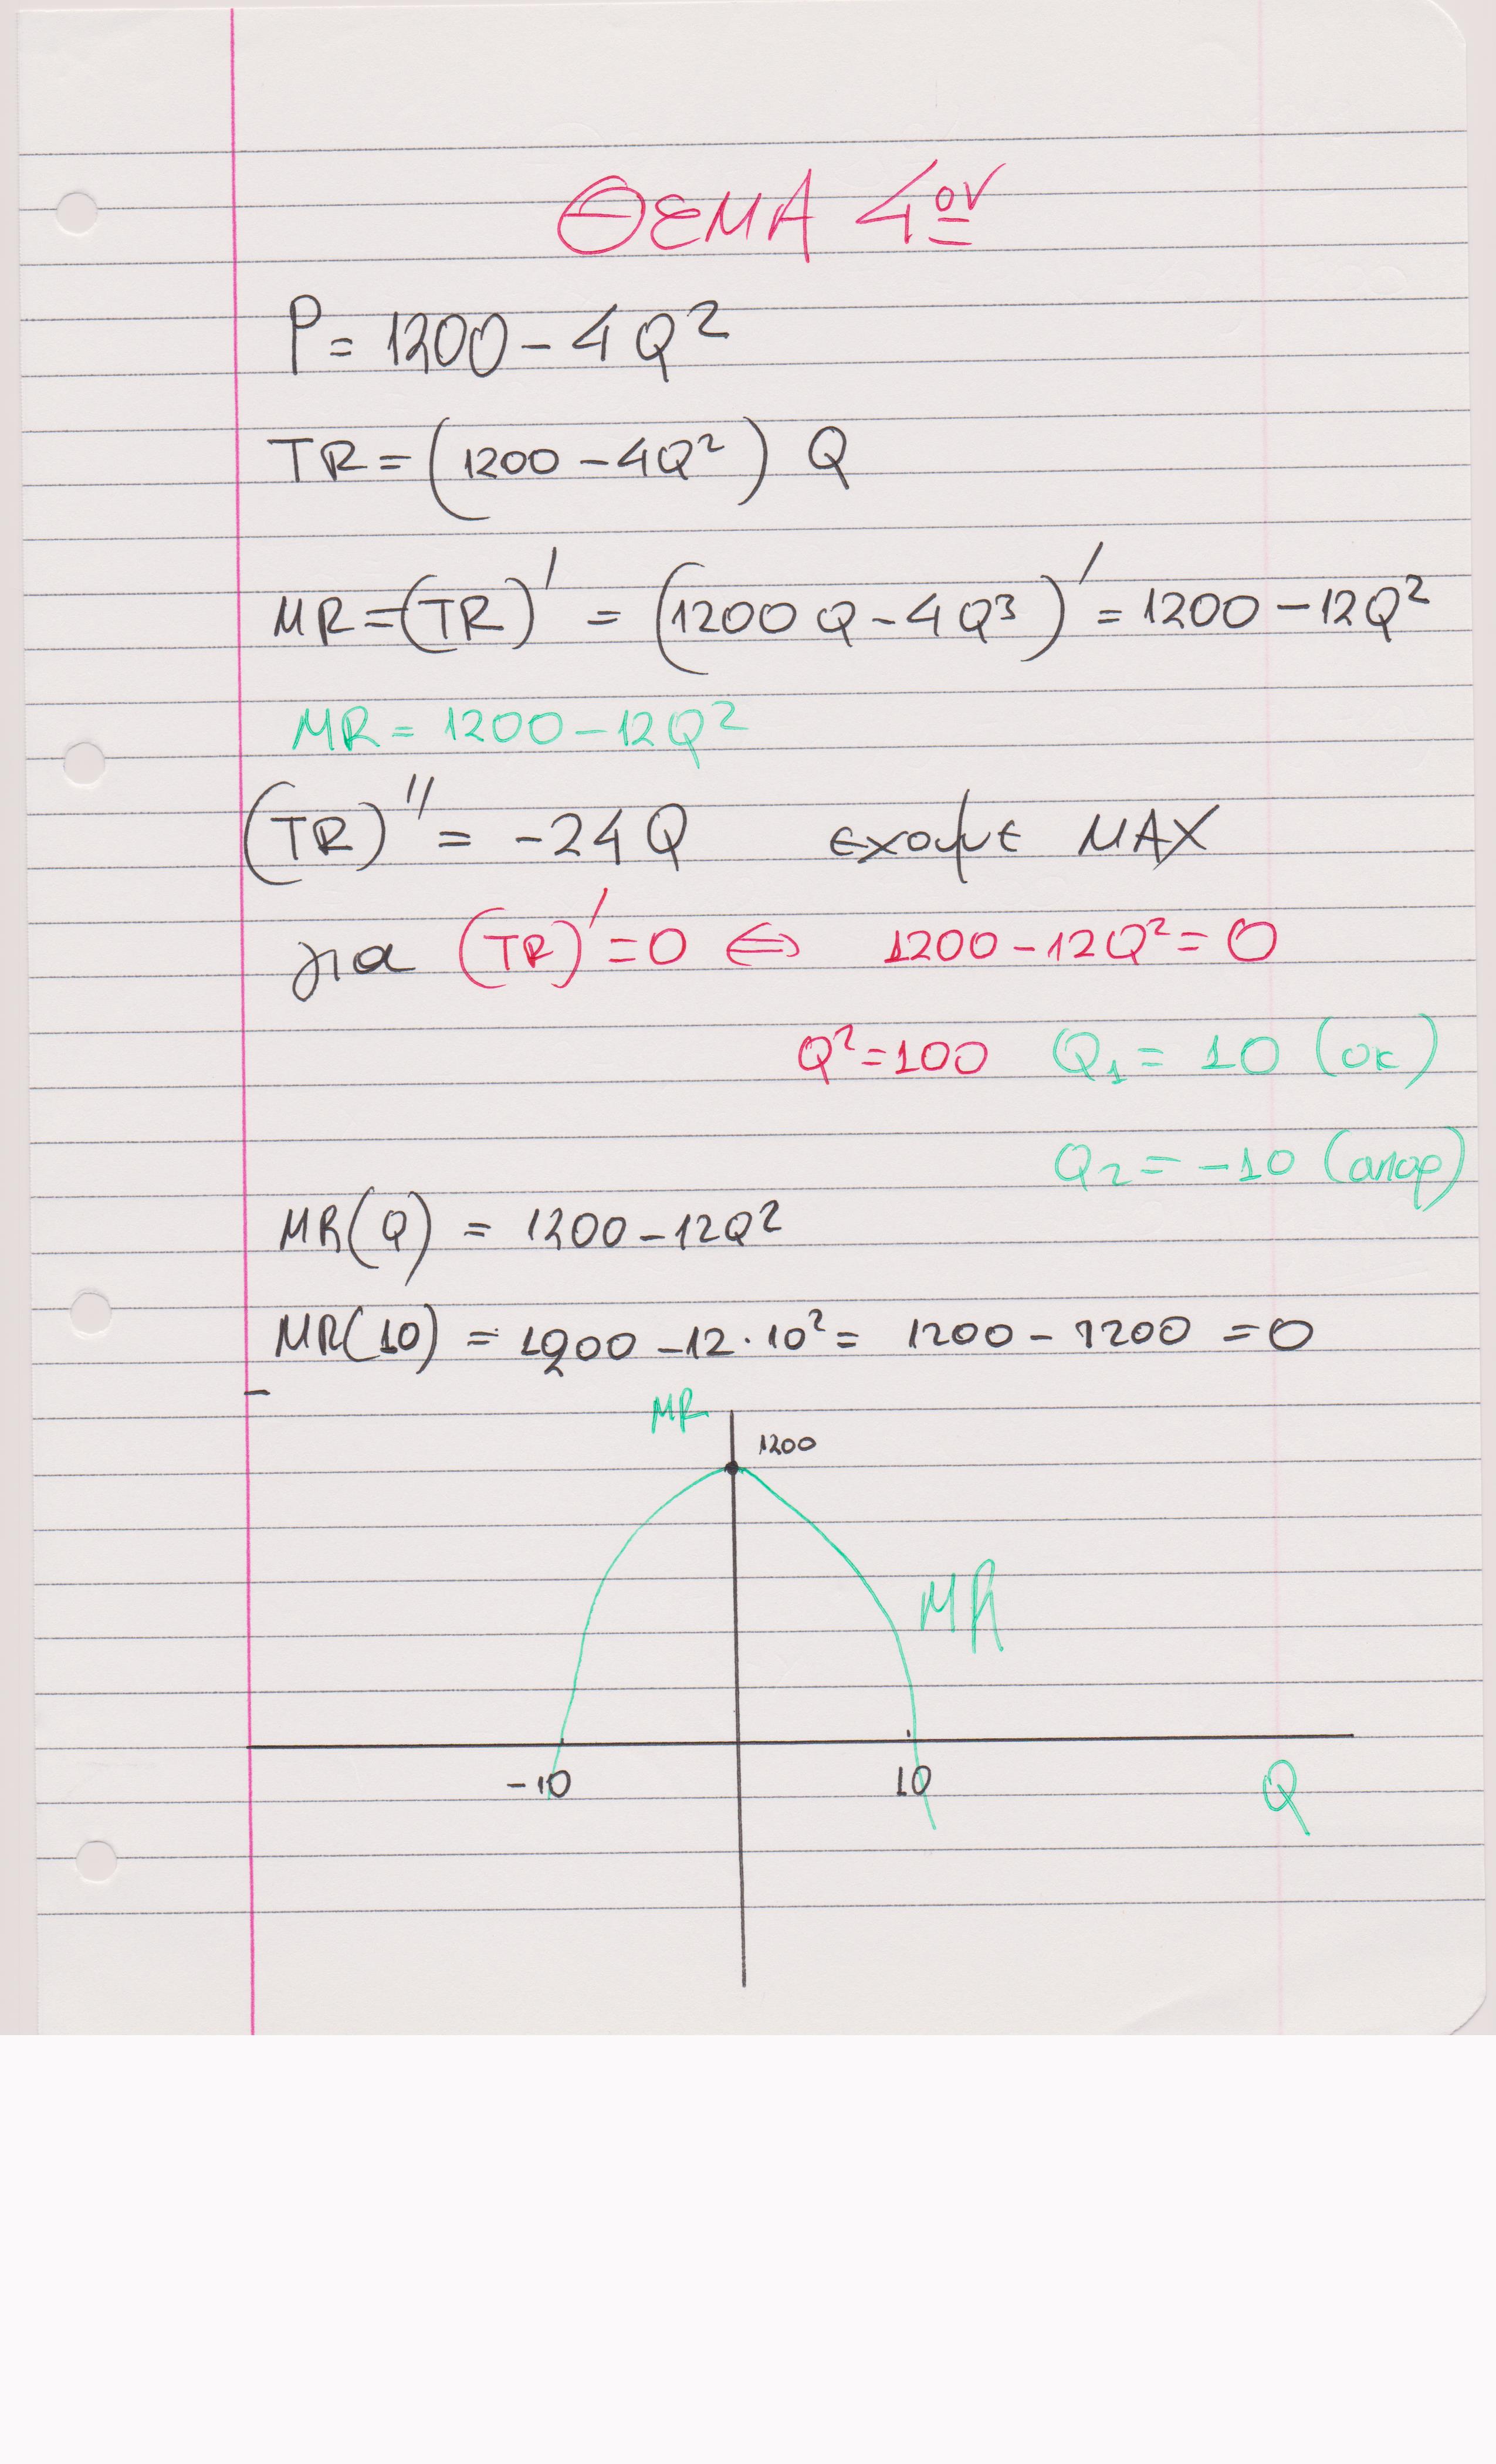 ΘΕΜΑ 4ον
P = 1200 - 4Q²
TR = (1200 - 4Q²) Q
MR = (TR)' = (1200Q - 4Q³)' = 1200 - 12Q²
MR = 1200 - 12Q²
(TR)'' = -24Q εχουμε MAX
για (TR)' = 0 ⇔ 1200 - 12Q² = 0
Q² = 100 Q₁ = 10 (οκ)
Q₂ = -10 (απορ)
MR(Q) = 1200 - 12Q²
MR(10) = 1200 - 12·10² = 1200 - 1200 = 0
MR
1200
MR
-10 10 Q